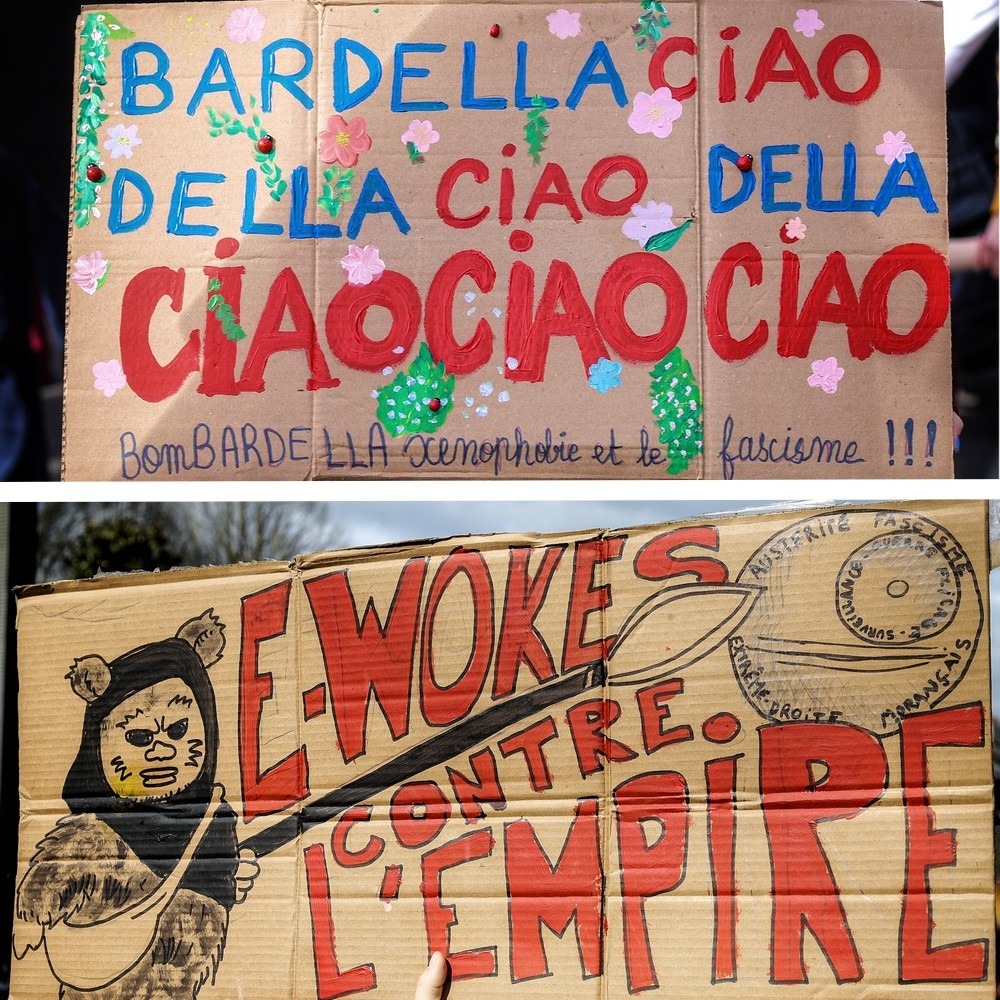 BARDELLA CiAO
DELLA CiAO DELLA
CiAO CiAO CiAO
BomBARDELLA xenophobie et le fascisme !!!
E-WOKES
CONTRE
L'EMPiRE
AUSTERITÉ FASCISME
SURVEILLANCE
EXTRÊME-DROITE